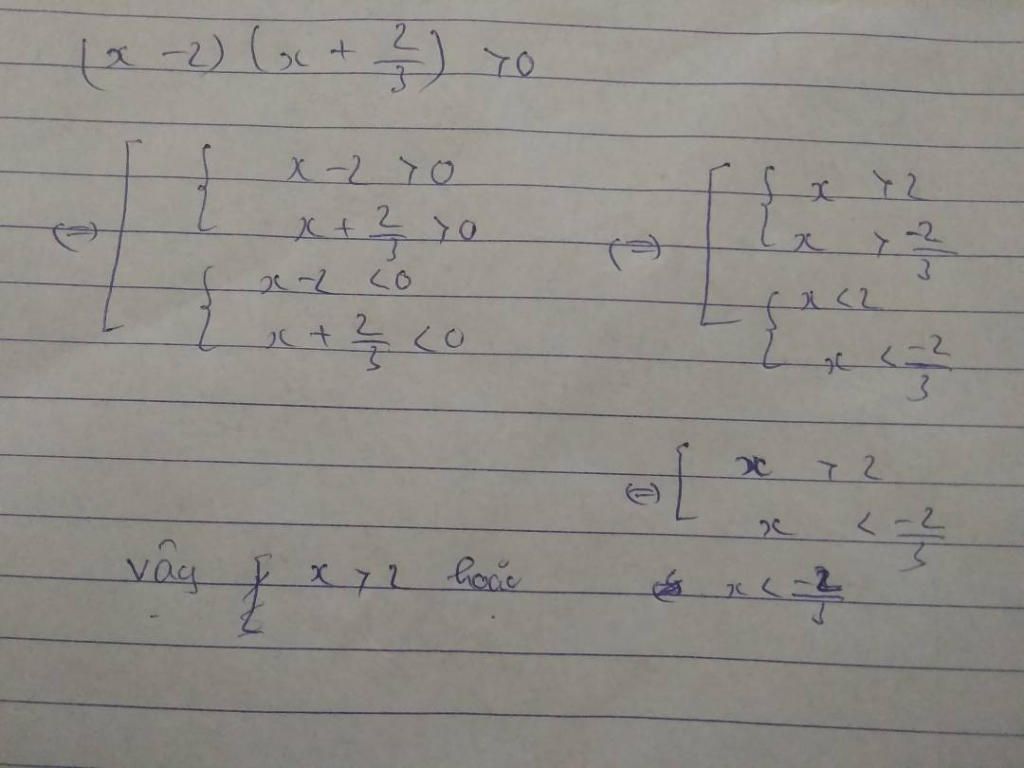 (x - 2) (x + 2/3) > 0
⇔ [ { x - 2 > 0
x + 2/3 > 0
{ x - 2 < 0
x + 2/3 < 0
⇔ [ { x > 2
x > -2/3
{ x < 2
x < -2/3
⇔ [ x > 2
x < -2/3
Vây x > 2 hoặc x < -2/3